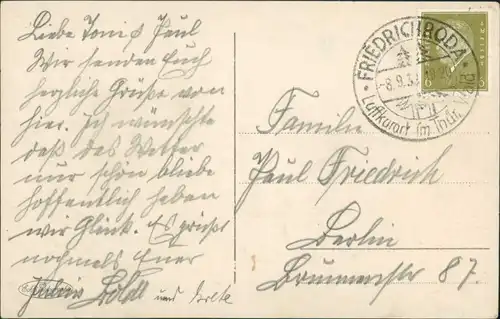 Liebe Toni & Paul
Wir senden Euch
herzliche Grüße von
hier. Ich wünschte
daß das Wetter
nur schön bliebe
hoffentlich haben
wir Glück. Es grüßt
nochmals Euer
und Grete
FRIEDRICHRODA
-8.9.3
Luftkurort im Thür. Wald
6
Familie
Paul Friedrich
Berlin
Brunnenstr 87.